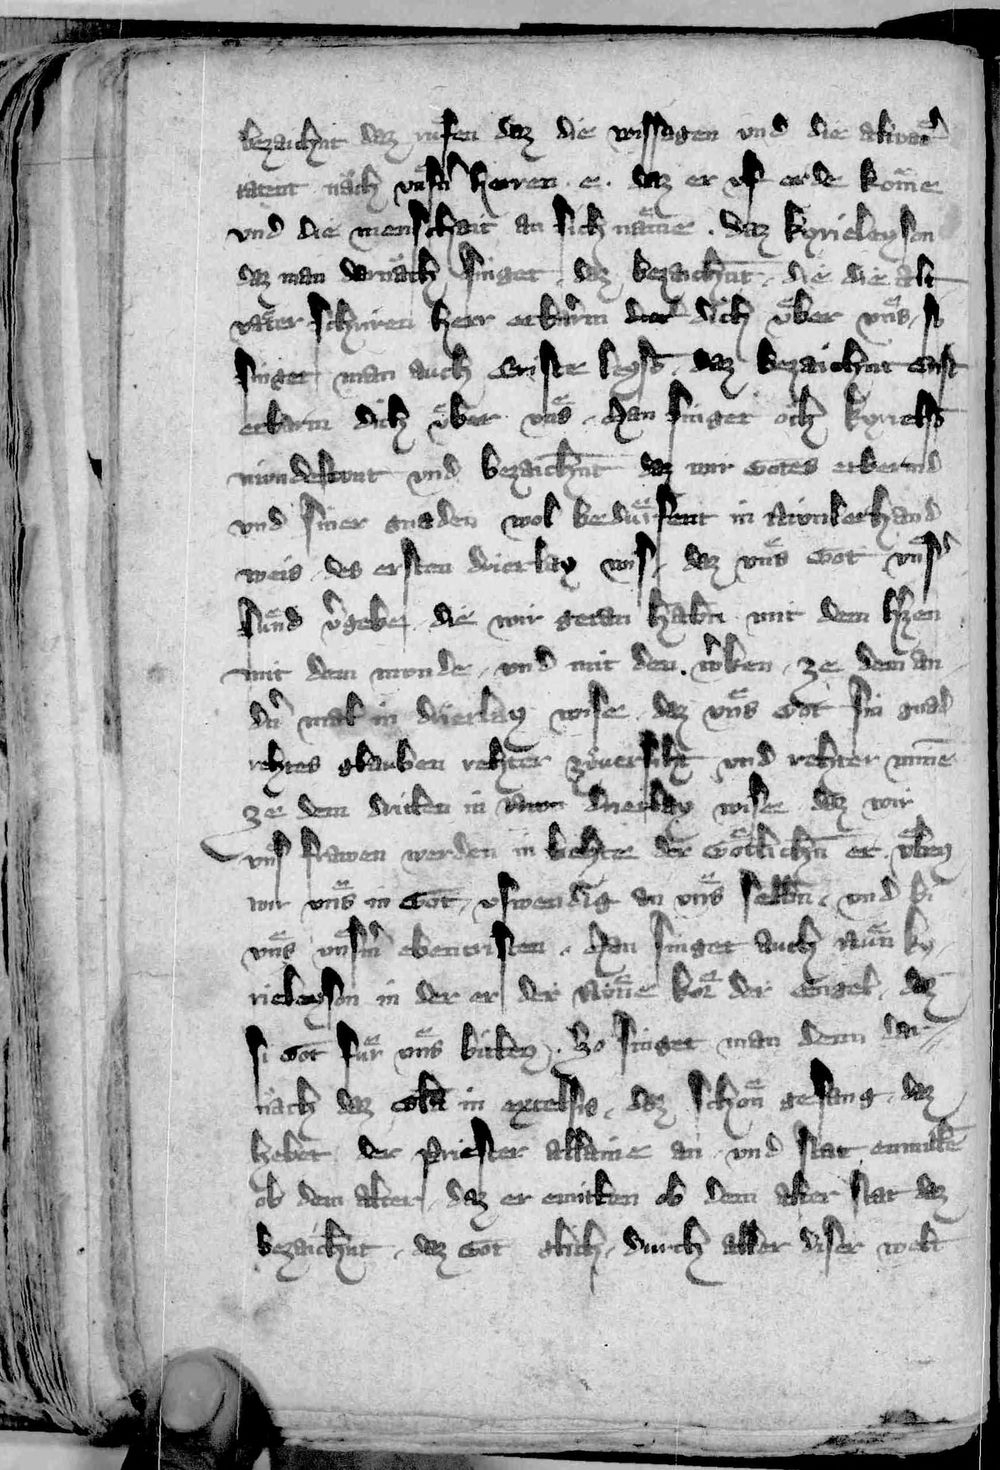 bezaichnt daz ruͤfen daz die wissagen vnd die altvaͤt̄
tatent nach vnsm̄ herren · e · daz er vf erde kom̄e
vnd die menschait an sich naͤme · daz kyrieleyson
daz man darnach singet · daz bezaichnt · die die alt
vaͤter schriren herr erbarm dich uͤber vns · so
singet man auch Criste leyso̅ · daz bezaichnt Crist
erbarm dich uͤber vns · Man singet och kyriels̄
und bezaichnt daz wir Gotes erbermd
vnd siner gnaden wol beduͤrfent in nvnlerhand
weis · des ersten drierlay wis · daz vns Got vns̄
suͤnd v̄gebe · die wir getan habn̄ mit dem h̄zen
mit dem munde · vnd mit den w̄ken · ze dem an
dn̄ mal in drierlay wise · daz vns Got sin gnad
rehtes glauben rehter zuͦversiht vnd rehter minne
ze dem dritten in drierlay wise · daz wir
vns frawen werden in der Goͤtlichn̄ er
wir vns in Got · vswendig an vns selbn̄ · vnd bi
vns vnsn̄ ebencristen · Man singet auch nuͤn ky
rieleyson in der er der Noͤne koͤr der Engel · daz
si Got fuͤr vns bitten · So singet man denn dar
nach daz glīa in excelsis · daz schoͤn gesang · daz
hebet der priester allaine an · vnd stat enmittē
ob dem alter · daz er emitten ob dem alter stat daz
bezaichnt · daz Got glich · durch aller diser welt